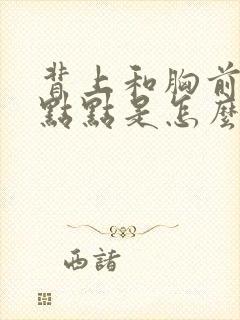 背上和胸前
點點是怎麼
西諸